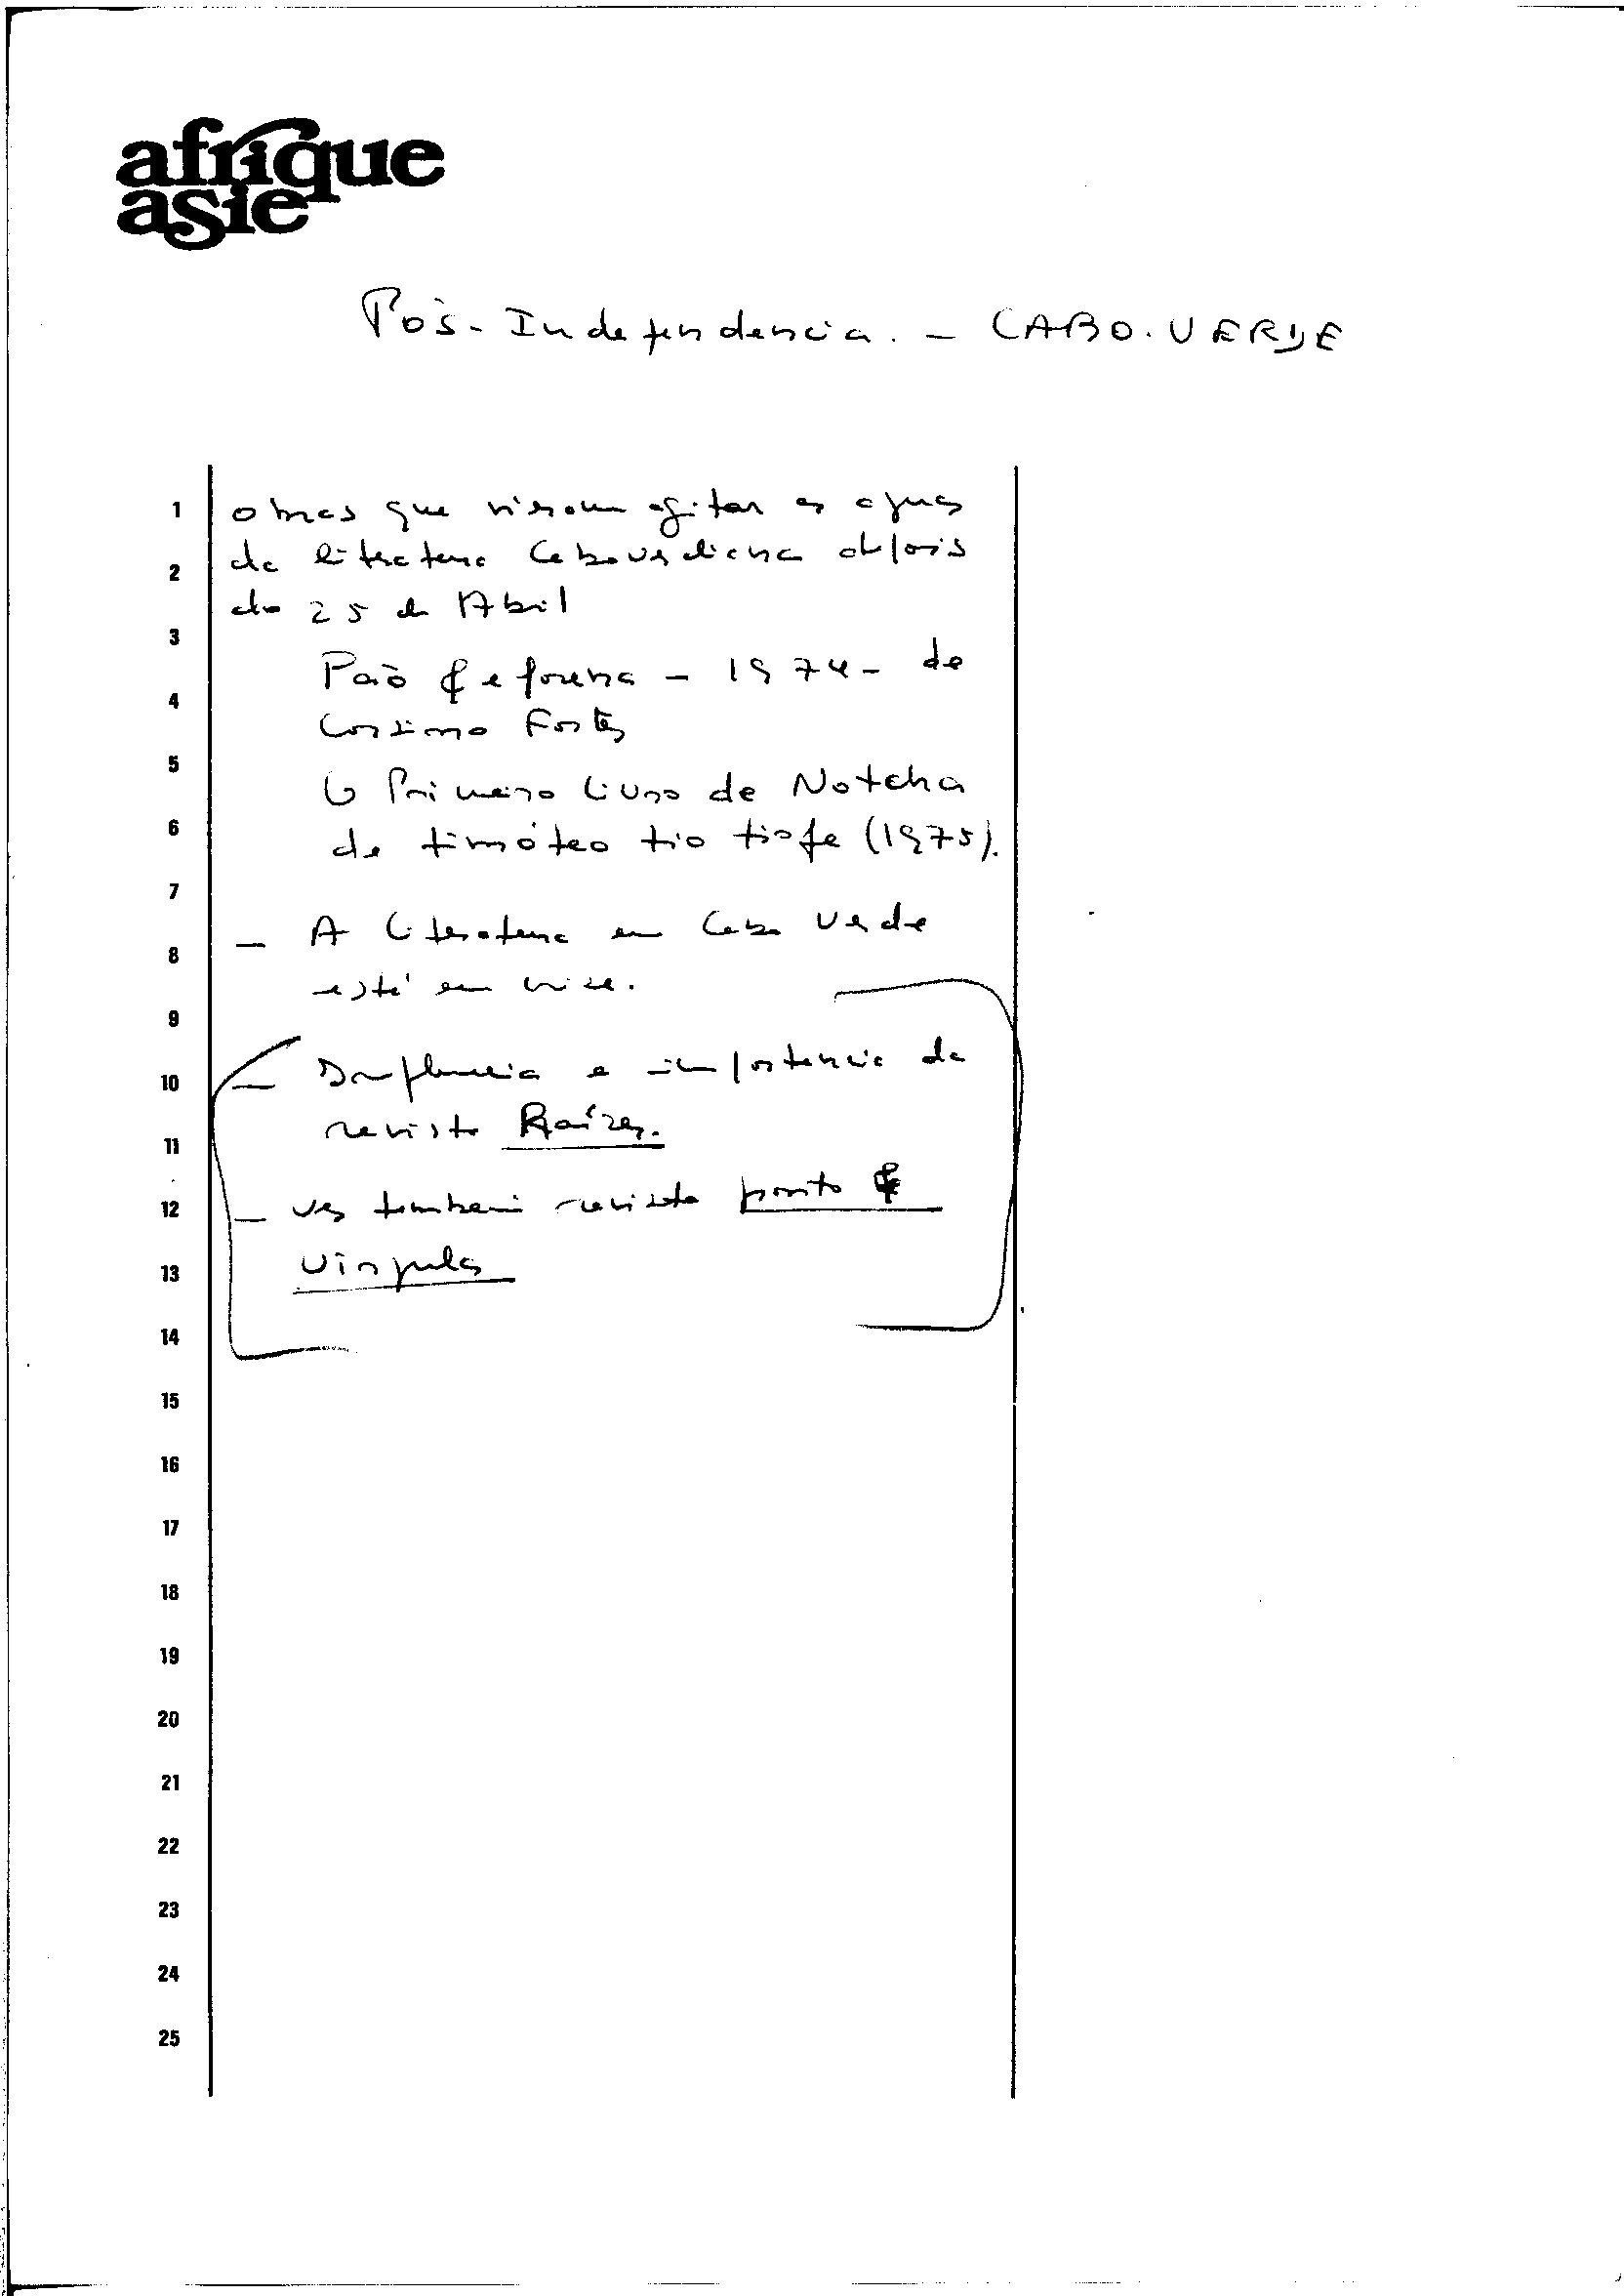 afrique
asie
Pós-Independencia. - CABO.VERDE
1 obras que vieram agitar as aguas
2 da literatura Caboverdiana depois
do 25 de Abril
3
Pão & fonema - 1974 - de
4
Corsino Fortes
5
O Primeiro Livro de Notcha
6
de timóteo tio tiofe (1975).
7
- A Literatura em Cabo Verde
8
está em crise.
9
- Influencia e importancia da
10
revista Raízes.
11
- ver também revista ponto &
12
Virgula
13
14
15
16
17
18
19
20
21
22
23
24
25